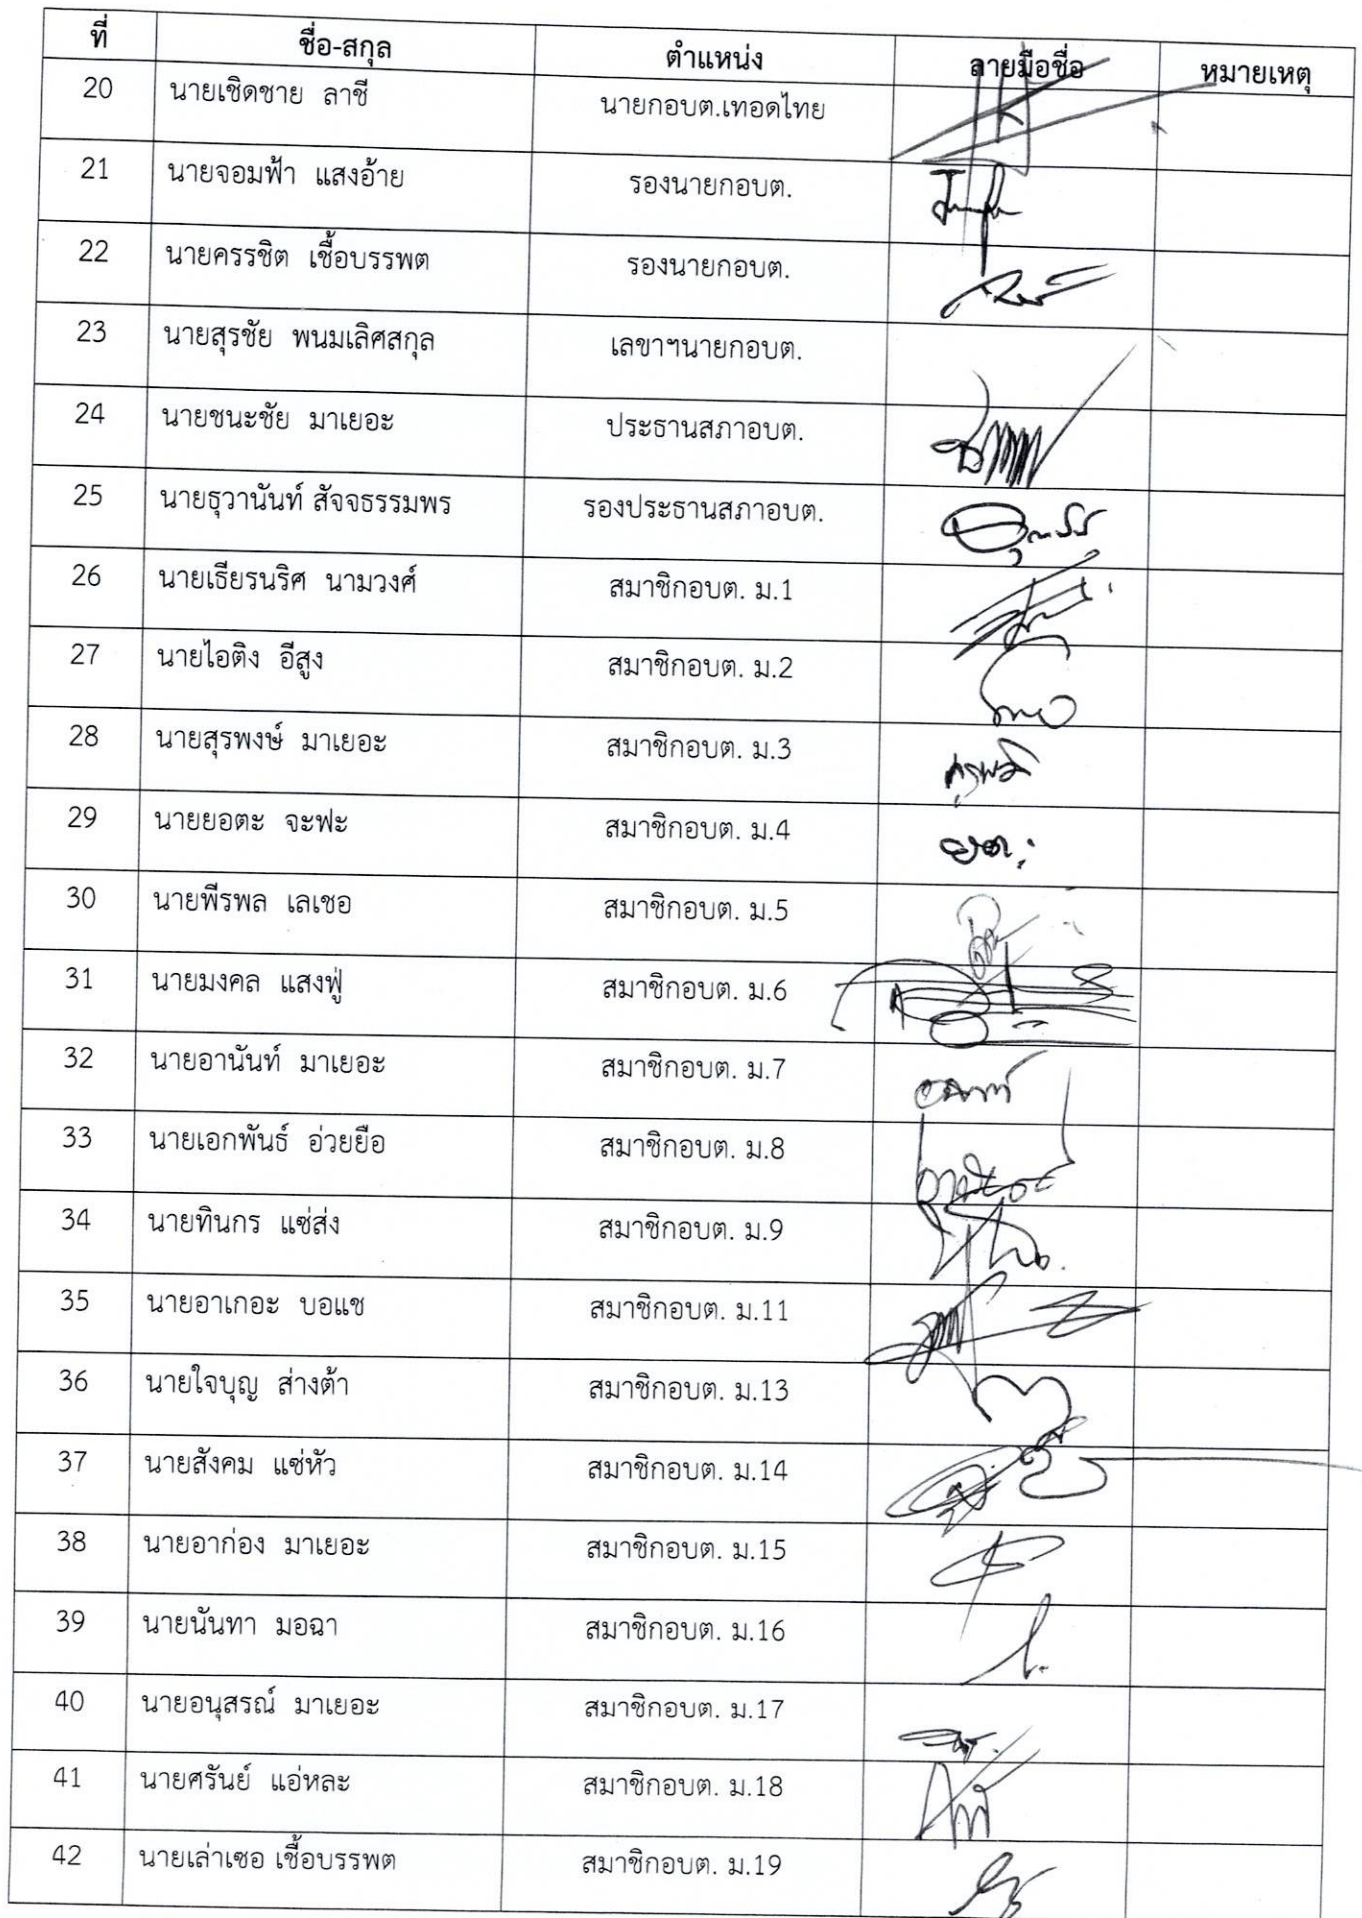 ที่ ชื่อ-สกุล ตำแหน่ง ลายมือชื่อ หมายเหตุ
20 นายเชิดชาย ลาชี นายกอบต.เทอดไทย
21 นายจอมฟ้า แสงอ้าย รองนายกอบต.
22 นายครรชิต เชื้อบรรพต รองนายกอบต.
23 นายสุรชัย พนมเลิศสกุล เลขาฯนายกอบต.
24 นายชนะชัย มาเยอะ ประธานสภาอบต.
25 นายธุวานันท์ สัจจธรรมพร รองประธานสภาอบต.
26 นายเธียรนริศ นามวงศ์ สมาชิกอบต. ม.1
27 นายไอติง อีสูง สมาชิกอบต. ม.2
28 นายสุรพงษ์ มาเยอะ สมาชิกอบต. ม.3
29 นายยอตะ จะฟะ สมาชิกอบต. ม.4
30 นายพีรพล เลเชอ สมาชิกอบต. ม.5
31 นายมงคล แสงฟู่ สมาชิกอบต. ม.6
32 นายอานันท์ มาเยอะ สมาชิกอบต. ม.7
33 นายเอกพันธ์ อ่วยยือ สมาชิกอบต. ม.8
34 นายทินกร แซ่ส่ง สมาชิกอบต. ม.9
35 นายอาเกอะ บอแช สมาชิกอบต. ม.11
36 นายใจบุญ ส่างต้า สมาชิกอบต. ม.13
37 นายสังคม แซ่หัว สมาชิกอบต. ม.14
38 นายอาก่อง มาเยอะ สมาชิกอบต. ม.15
39 นายนันทา มอฉา สมาชิกอบต. ม.16
40 นายอนุสรณ์ มาเยอะ สมาชิกอบต. ม.17
41 นายศรันย์ แอ่หละ สมาชิกอบต. ม.18
42 นายเล่าเซอ เชื้อบรรพต สมาชิกอบต. ม.19